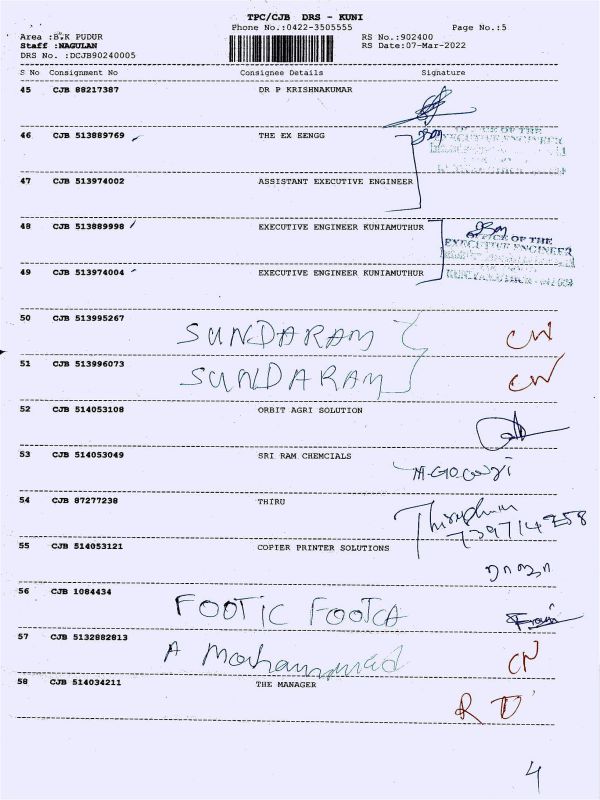 TPC/CJB DRS - KUNI
Phone No.:0422-3505555 Page No.:5
Area :B.K PUDUR RS No.:902400
Staff :NAGULAN RS Date:07-Mar-2022
DRS No. :DCJB90240005
S No Consignment No Consignee Details Signature
45 CJB 88217387 DR P KRISHNAKUMAR
46 CJB 513889769 THE EX EENGG
OFFICE OF THE
EXECUTIVE ENGINEER
47 CJB 513974002 ASSISTANT EXECUTIVE ENGINEER
48 CJB 513889998 EXECUTIVE ENGINEER KUNIAMUTHUR
OFFICE OF THE
EXECUTIVE ENGINEER
49 CJB 513974004 EXECUTIVE ENGINEER KUNIAMUTHUR
50 CJB 513995267 SUNDARAM CN
51 CJB 513996073 SUNDARAM CN
52 CJB 514053108 ORBIT AGRI SOLUTION
53 CJB 514053049 SRI RAM CHEMCIALS
54 CJB 87277238 THIRU
55 CJB 514053121 COPIER PRINTER SOLUTIONS
56 CJB 1084434 FOOTIC FOOTCA
57 CJB 5132882813 A Mohammad CN
58 CJB 514034211 THE MANAGER RD
4